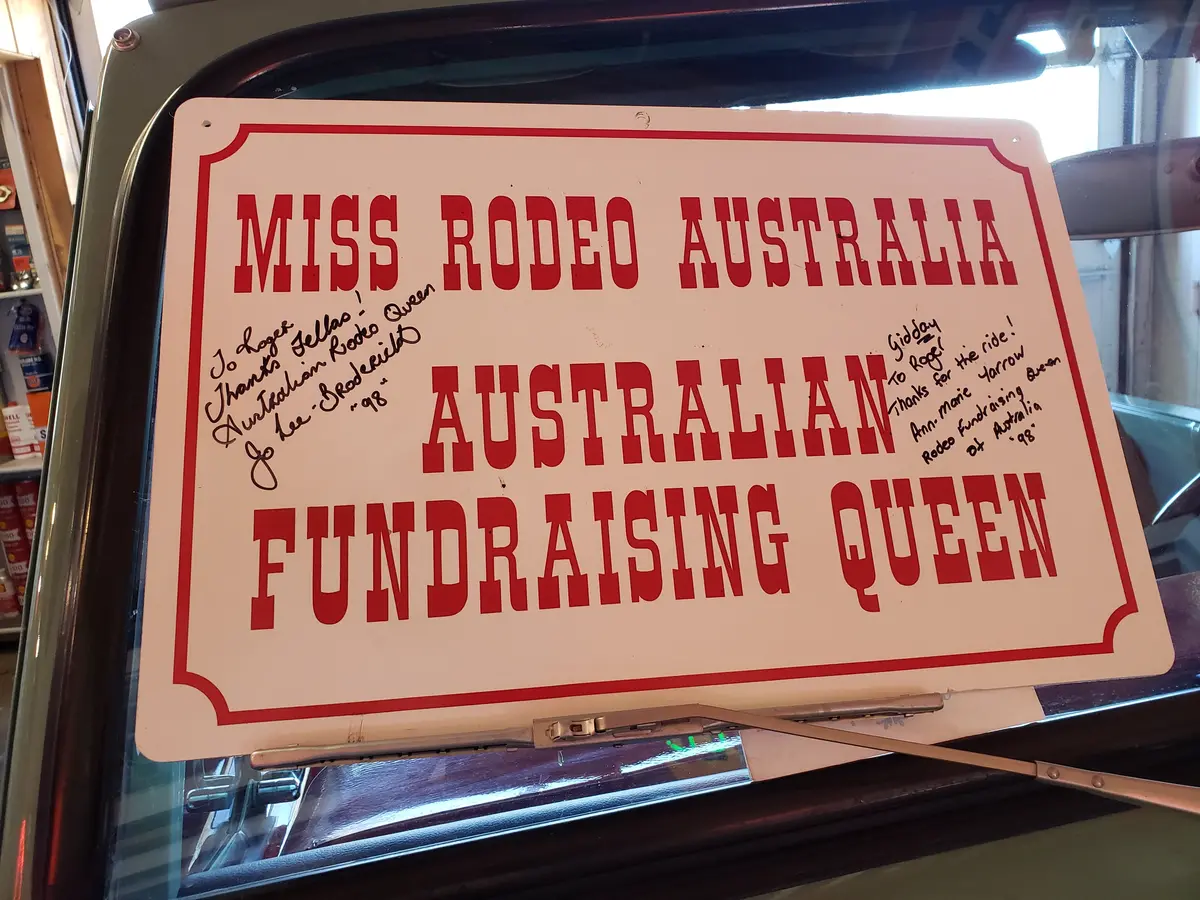 MISS RODEO AUSTRALIA
To Roger
Thanks Fellas!
Australian Rodeo Queen
Jo Lee-Broderick
"98"
Gidday
To Roger
Thanks for the ride!
Ann-marie Yarrow
Rodeo Fundraising Queen
of Australia
"98"
AUSTRALIAN
FUNDRAISING QUEEN